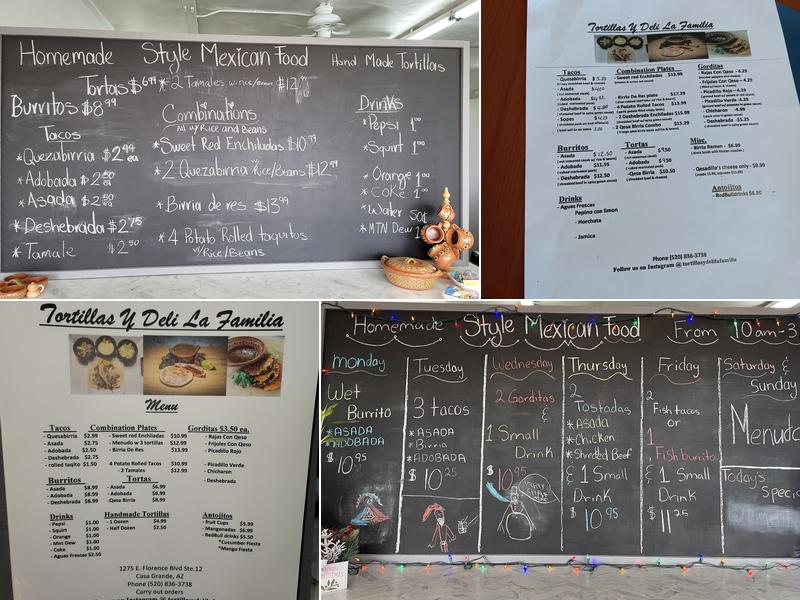 Homemade Style Mexican Food Hand Made Tortillas
Tortas $6.99
* 2 Tamales w. rice/bean $12.99
Burritos $8.99
Combinations
All w/ Rice and Beans
Drinks
Tacos
* Quezabirria $2.99 ea
* Adobada $2.50 ea
* Asada $2.50 ea
* Deshebrada $2.75
* Tamale $2.50
* Sweet Red Enchiladas $10.99
* 2 Quezabirria w/ Rice/Beans $12.99
* Birria de res $13.99
* 4 Potato Rolled taquitos
w/ Rice/Beans
* Pepsi 1.00
* Squirt 1.00
* Orange 1.00
* COKE 1.00
* Water 50¢
* MTN Dew
Tortillas Y Deli La Familia
Tacos
- Quesabirria
Asada
Adobada
Deshebrada
Sopes
Combination Plates
- Sweet red Enchiladas $13.99
- Birria De Res plate $17.29
- 4 Potato Rolled Tacos $13.99
- 2 Deshebrada Enchiladas $15.99
- 2 Qesa Birria Combo $15.29
Gorditas
- Rajas Con Qeso - 4.29
- Frijoles Con Qeso - 4.29
- Picadillo Rojo - 4.29
- Picadillo Verde - 4.29
- Chicharon - 4.99
- Deshebrada - $5.25
Burritos
- Asada $12.50
- Adobada $11.95
- Deshebrada $12.50
Tortas
- Asada $9.50
- Adobada $9.50
- Qesa Birria $10.50
Misc.
- Birria Remen - $6.99
- Qesadilla's cheese only - $9.99
Antojitos
- RedBull drinks $6.50
Drinks
- Aguas Frescas
Pepino con limon
- Horchata
- Jamica
Phone (520) 836-3738
Follow us on Instagram @ tortillasydelilafamilia
Tortillas Y Deli La Familia
Menu
Tacos
- Quesabirria $2.99
- Asada $2.75
- Adobada $2.50
- Deshebrada $2.75
- rolled taqito $1.50
Combination Plates
- Sweet red Enchiladas $10.99
- Menudo w 3 tortillas $12.99
- Birria De Res $13.99
4 Potato Rolled Tacos $10.99
- 2 Tamales $12.99
Gorditas $3.50 ea.
- Rajas Con Qeso
- Frijoles Con Qeso
- Picadillo Rojo
- Picadillo Verde
- Chicharon
- Deshebrada
Burritos
- Asada $8.99
- Adobada $8.99
- Deshebrada $8.99
Tortas
- Asada $6.99
- Adobada $6.99
-Qesa Birria $8.99
Drinks
- Pepsi $1.00
- Squirt $1.00
- Orange $1.00
- Mnt Dew $1.00
- Coke $1.00
- Aguas Frescas $2.50
Handmade Tortillas
- 1 Dozen $4.99
- Half Dozen $2.50
Antojitos
- fruit Cups $5.99
- Mangonadas $6.99
- RedBull drinks $5.50
*Cucumber Fiesta
*Mango Fiesta
1275 E. Florence Blvd Ste.12
Casa Grande, AZ
Phone (520) 836-3738
Carry out orders
Homemade Style Mexican Food From 10am-3
Monday
Wet
Burrito
* ASADA
* ADOBADA
$10.95
Tuesday
3 tacos
* ASADA
* Birria
* ADOBADA
$10.25
Wednesday
2 Gorditas
&
1 Small
Drink
$10.95
Thursday
2
Tostadas
* Asada
* Chicken
* Shreded Beef
& 1 Small
Drink
$10.95
Friday
2
Fish tacos
or
1
Fish burrito
& 1 Small
Drink
$11.25
Saturday &
Sunday
Menudo
Today's
Special